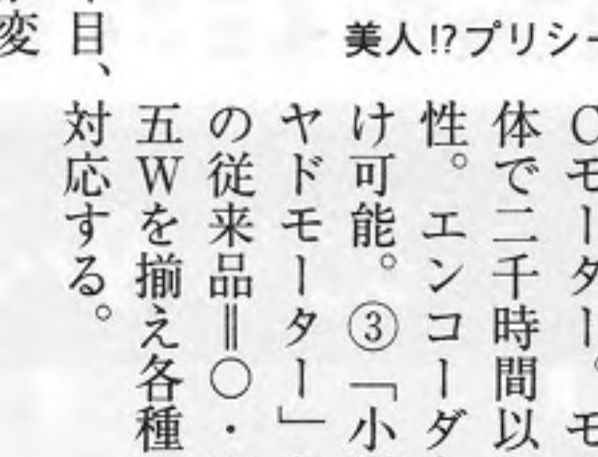 美人!?プリシー
Cモーター。モ
体で二千時間以
性。エンコーダ
け可能。③「小
ヤドモーター」
の従来品＝○・
五Wを揃え各種
対応する。
目、
変